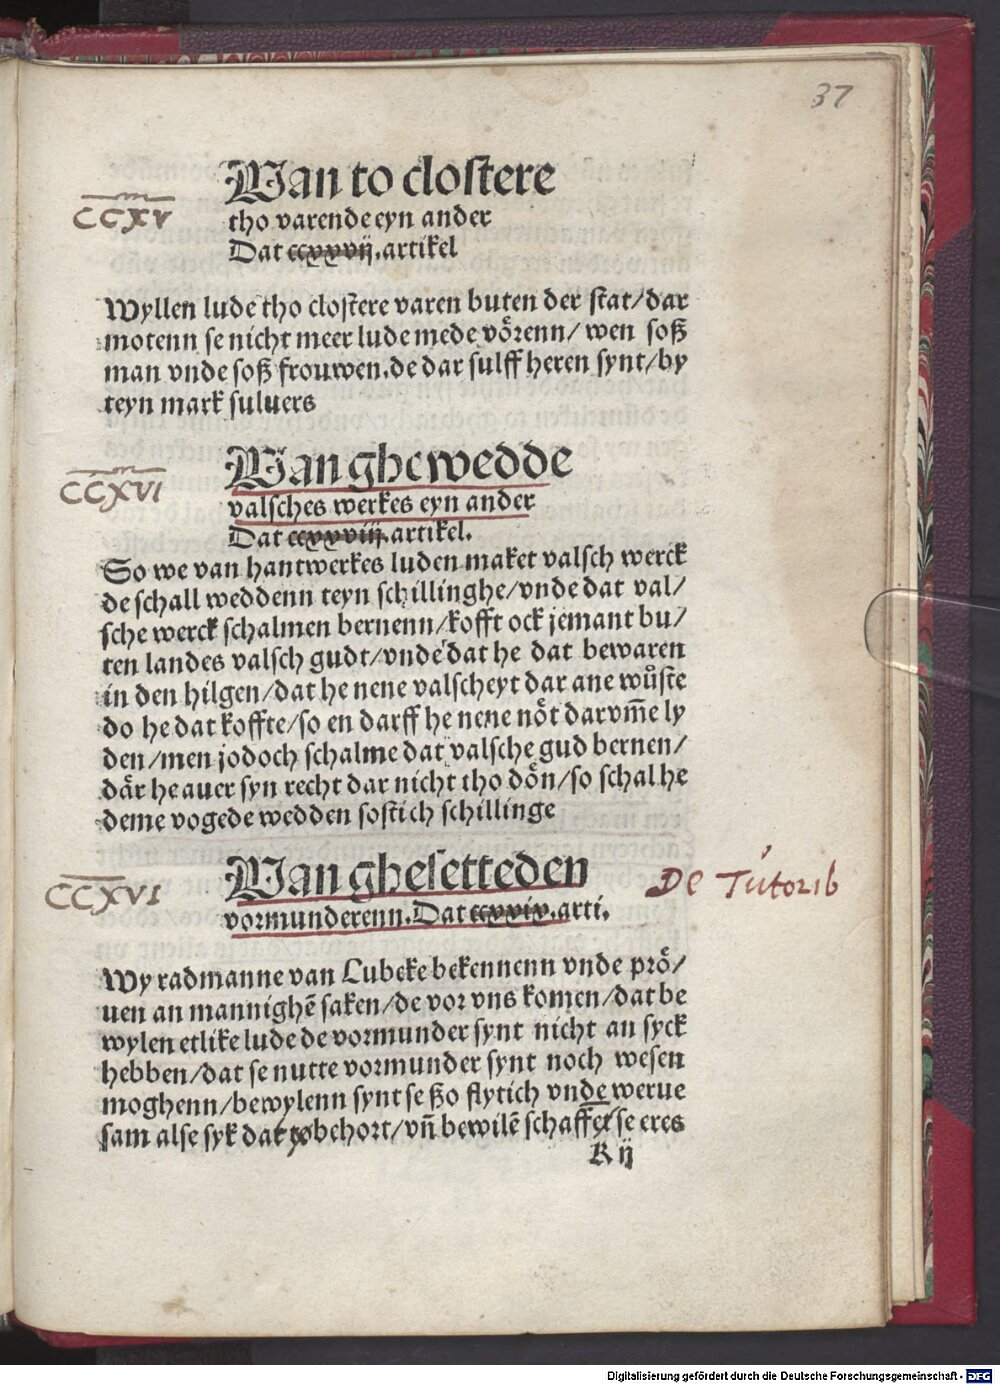 37
Wan to clostere
CCXV
tho varende eyn ander
Dat ccxxvij. artikel
Wyllen lude tho clostere varen buten der stat/dar
motenn se nicht meer lude mede võrenn/ wen soß
man vnde soß frouwen. de dar sulff heren synt/by
teyn mark suluers
Wan ghewedde
CCXVI
valsches werkes eyn ander
Dat ccxxviij. artikel.
So we van hantwerkes luden maket valsch werck
de schall weddenn teyn schillinghe/vnde dat val/
sche werck schalmen bernenn/kofft ock jemant bu/
ten landes valsch gudt/vnde dat he dat bewaren
in den hilgen/dat he nene valscheyt dar ane wůste
do he dat koffte/so en darff he nene nöt darvm̃e ly
den/men jodoch schalme dat valsche gud bernen/
där he auer syn recht dar nicht tho dön/so schal he
deme vogede wedden sostich schillinge
Wan ghesetteden
CCXVI
De Tutorib
vormunderenn. Dat ccxxix. arti.
Wy radmanne van Lubeke bekennenn vnde prö/
uen an mannighẽ saken/de vor vns komen/dat be
wylen etlike lude de vormunder synt nicht an syck
hebben/dat se nutte vormunder synt noch wesen
moghenn/bewylenn synt se ßo flytich vnde werue
sam alse syk dat tobehort/vñ bewilẽ schaffet se eres
K ij
Digitalisierung gefördert durch die Deutsche Forschungsgemeinschaft - DFG